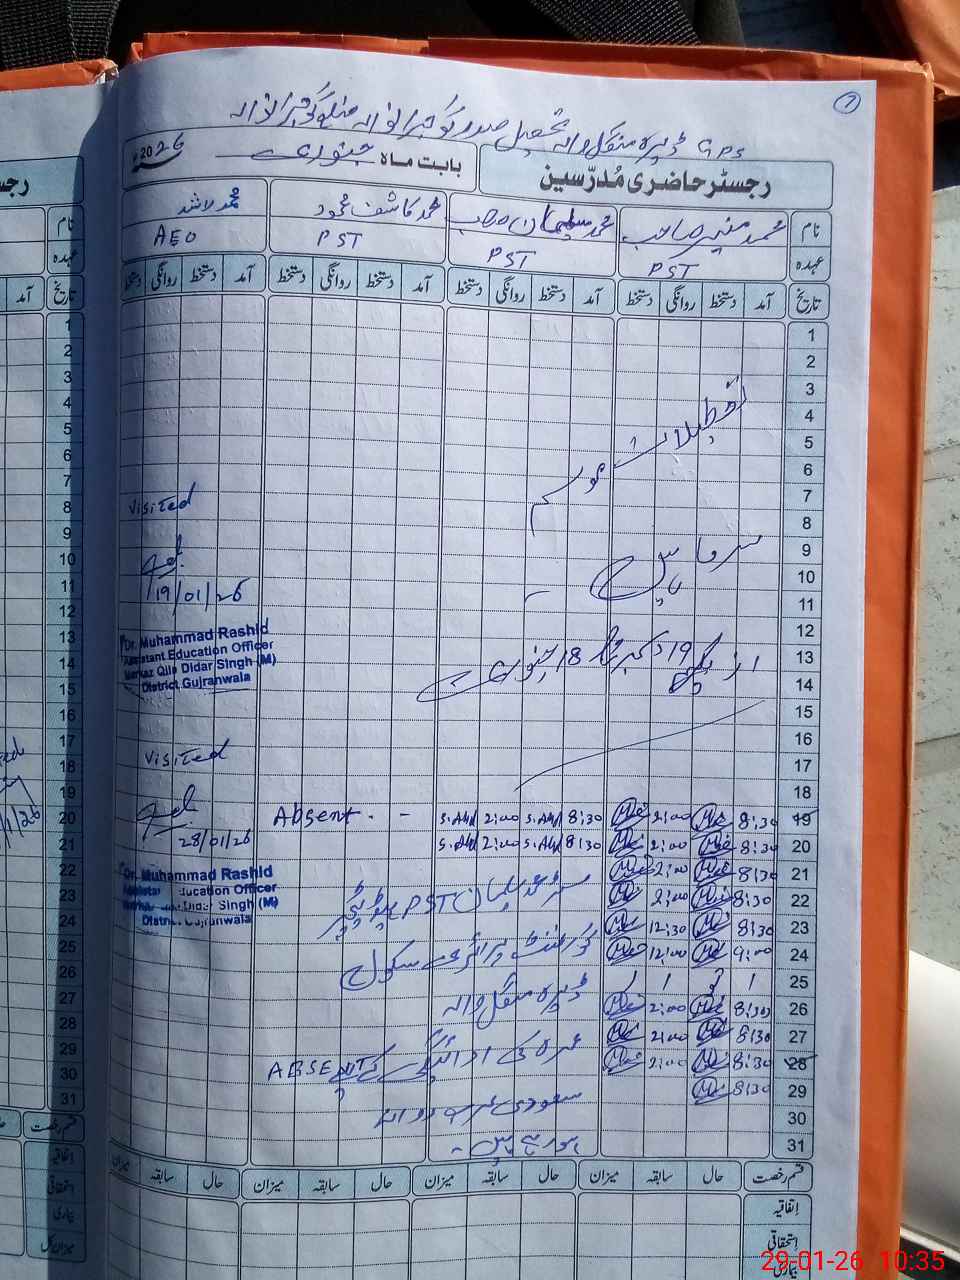 7
GPS ڈیرہ منگل والہ تحصیل صدر گوجرانوالہ ضلع گوجرانوالہ
رجسٹر حاضری مُدرّسین
بابت ماہ جنوری 2026
نام محمد منیر صاحب محمد سلیمان صاحب محمد کاشف محمود محمد راشد
عہدہ PST PST PST AEO
تاریخ آمد دستخط روانگی دستخط آمد دستخط روانگی دستخط آمد دستخط روانگی دستخط آمد دستخط روانگی دستخط
1
2
3
4
5
6
7
8
9
10
11
12
13
14
15
16
17
18
تعطیلات موسم
سرما
از 19 دسمبر 18 جنوری
19 8:30 2:00 8:30 S.Ahd 2:00 S.Ahd Absent. -
20 8:30 2:00 8:30 S.Ahd 2:00 S.Ahd
21 8:30 2:00
22 8:30 2:00
23 8:30 12:30
24 9:00 12:00
25
26 8:30 2:00
27 8:30 2:00
28 8:30 2:00 ABSENT
29 8:30
30
31
سر محمد سلیمان PST ہیڈ ٹیچر
گورنمنٹ پرائمری سکول
ڈیرہ منگل والہ
عمرہ کی ادائیگی کے لیے
سعودی عرب روانہ
ہو رہے ہیں -
Visited
19/01/26
Dr. Muhammad Rashid
Assistant Education Officer
Markaz Qila Didar Singh (M)
District Gujranwala
Visited
28/01/26
Dr. Muhammad Rashid
Assistant Education Officer
Markaz Qila Didar Singh (M)
District Gujranwala
قسم رخصت حال سابقہ میزان حال سابقہ میزان حال سابقہ میزان حال سابقہ میزان
اتفاقیہ
استحقاقی
بیماری
29-01-26 10:35